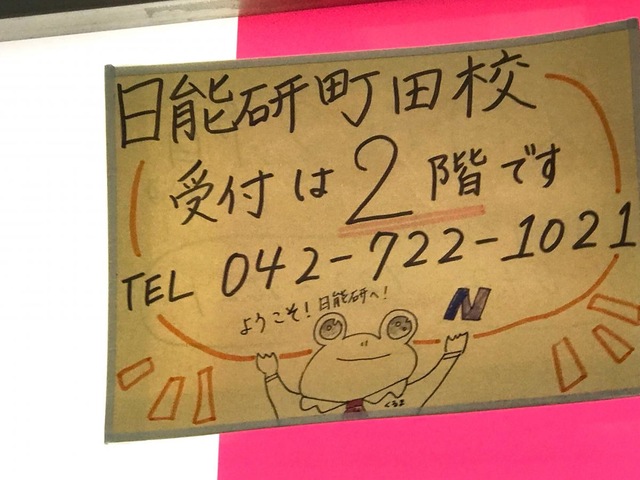 日能研町田校
受付は2階です
TEL 042-722-1021
ようこそ!日能研へ!
N